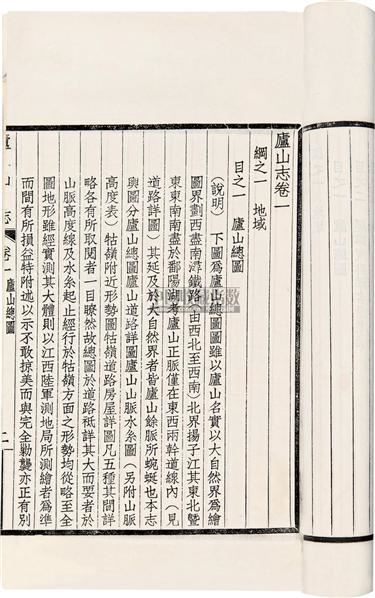 廬山志卷一
綱之一 地域
目之一 廬山總圖
(說明) 下圖爲廬山總圖圖雖以廬山名實以大自然界爲繪
圖界劃西盡南潯鐵路(由西北至西南)北界揚子江其東北曁
東東南南盡於鄱陽湖考廬山正脈僅在東西兩幹道線內(見
道路詳圖)其延及於大自然界者皆廬山餘脈所蜿蜒也本志
輿圖分廬山總圖廬山道路詳圖廬山山脈水系圖(另附山脈
高度表)牯嶺附近形勢圖牯嶺道路房屋詳圖凡五種其間詳
略各有所取閱者一目瞭然故總圖於道路祗詳其大而要者於
山脈高度線及水系起止經行於牯嶺方面之形勢均從略至全
圖地形雖經實測其大體則以江西陸軍測地局所測繪者爲準
而間有所損益特附述以示不敢掠美而與完全勦襲亦正有別
廬山志 卷一 廬山總圖 一